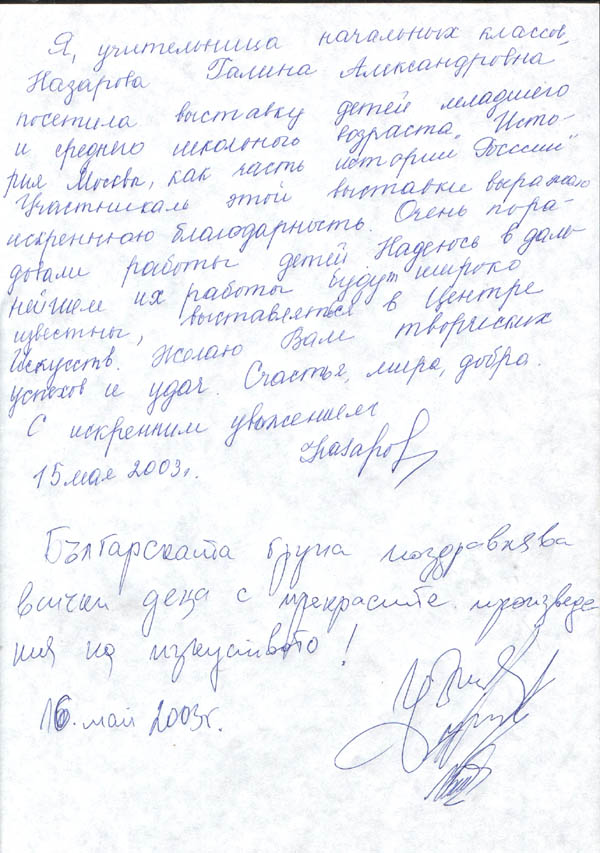 Я, учительница начальных классов,
Назарова Галина Александровна
посетила выставку детей младшего
и среднего школьного возраста „Исто-
рия Москвы, как часть истории России"
Участникам этой выставки выражаю
искреннюю благодарность. Очень пора-
довали работы детей Надеюсь в даль
нейшем их работы будут широко
известны, выставляться в Центре
Искусств. Желаю Вам творческих
успехов и удач. Счастья, мира, добра.
С искренним уважением
15 мая 2003г. Назаров
Българската група поздравлява
всички деца с прекрасните произведе
ния на изкуството!
16. май 2003г.